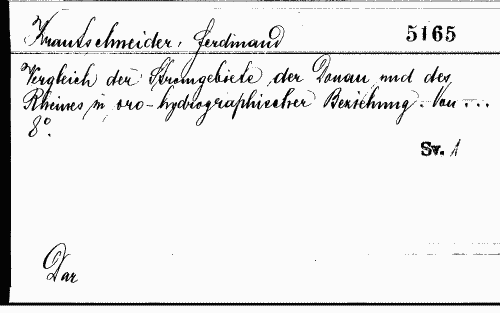 Krautschneider, Ferdinand 5165
Vergleich der Stromgebiete der Donau und des
Rheines in oro-hydrographischer Beziehung. Von ...
8°.
Sv. A
Dar